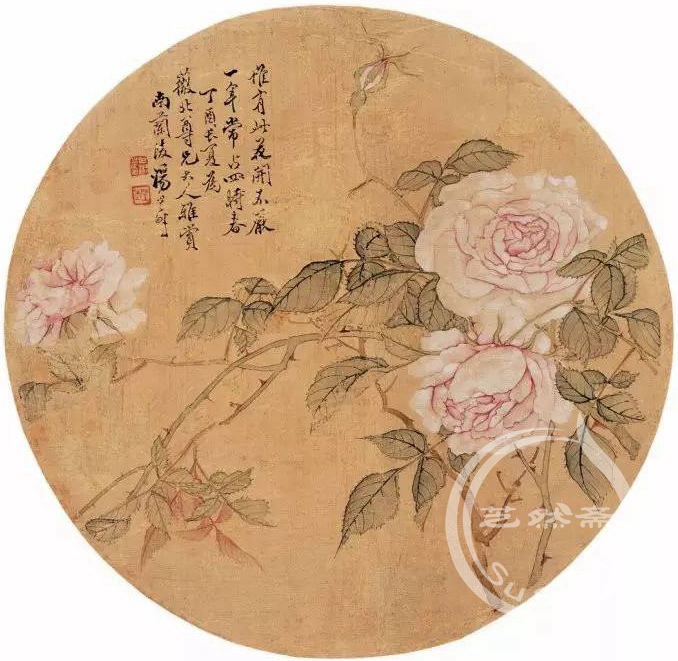 惟有此花開不厭
一年常占四時春
丁酉長夏為
薇北尊兄大人雅賞
南蘭陵楊
然斋
Su